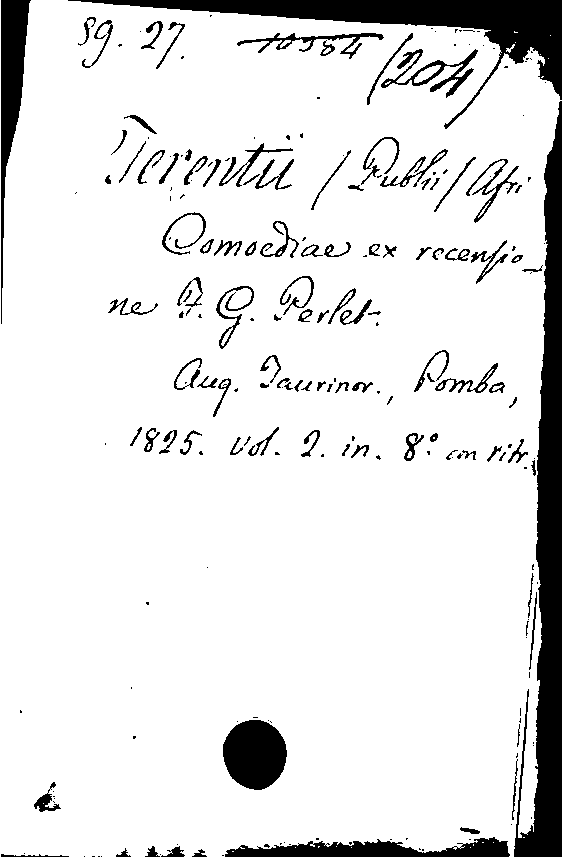 sg. 27. 10984 (204)
Terentii (Publii) Afri
Comoediae ex recensio_
ne F. G. Perlet.
Aug. Taurinor., Pomba,
1825. vol. 2. in. 8º con ritr.